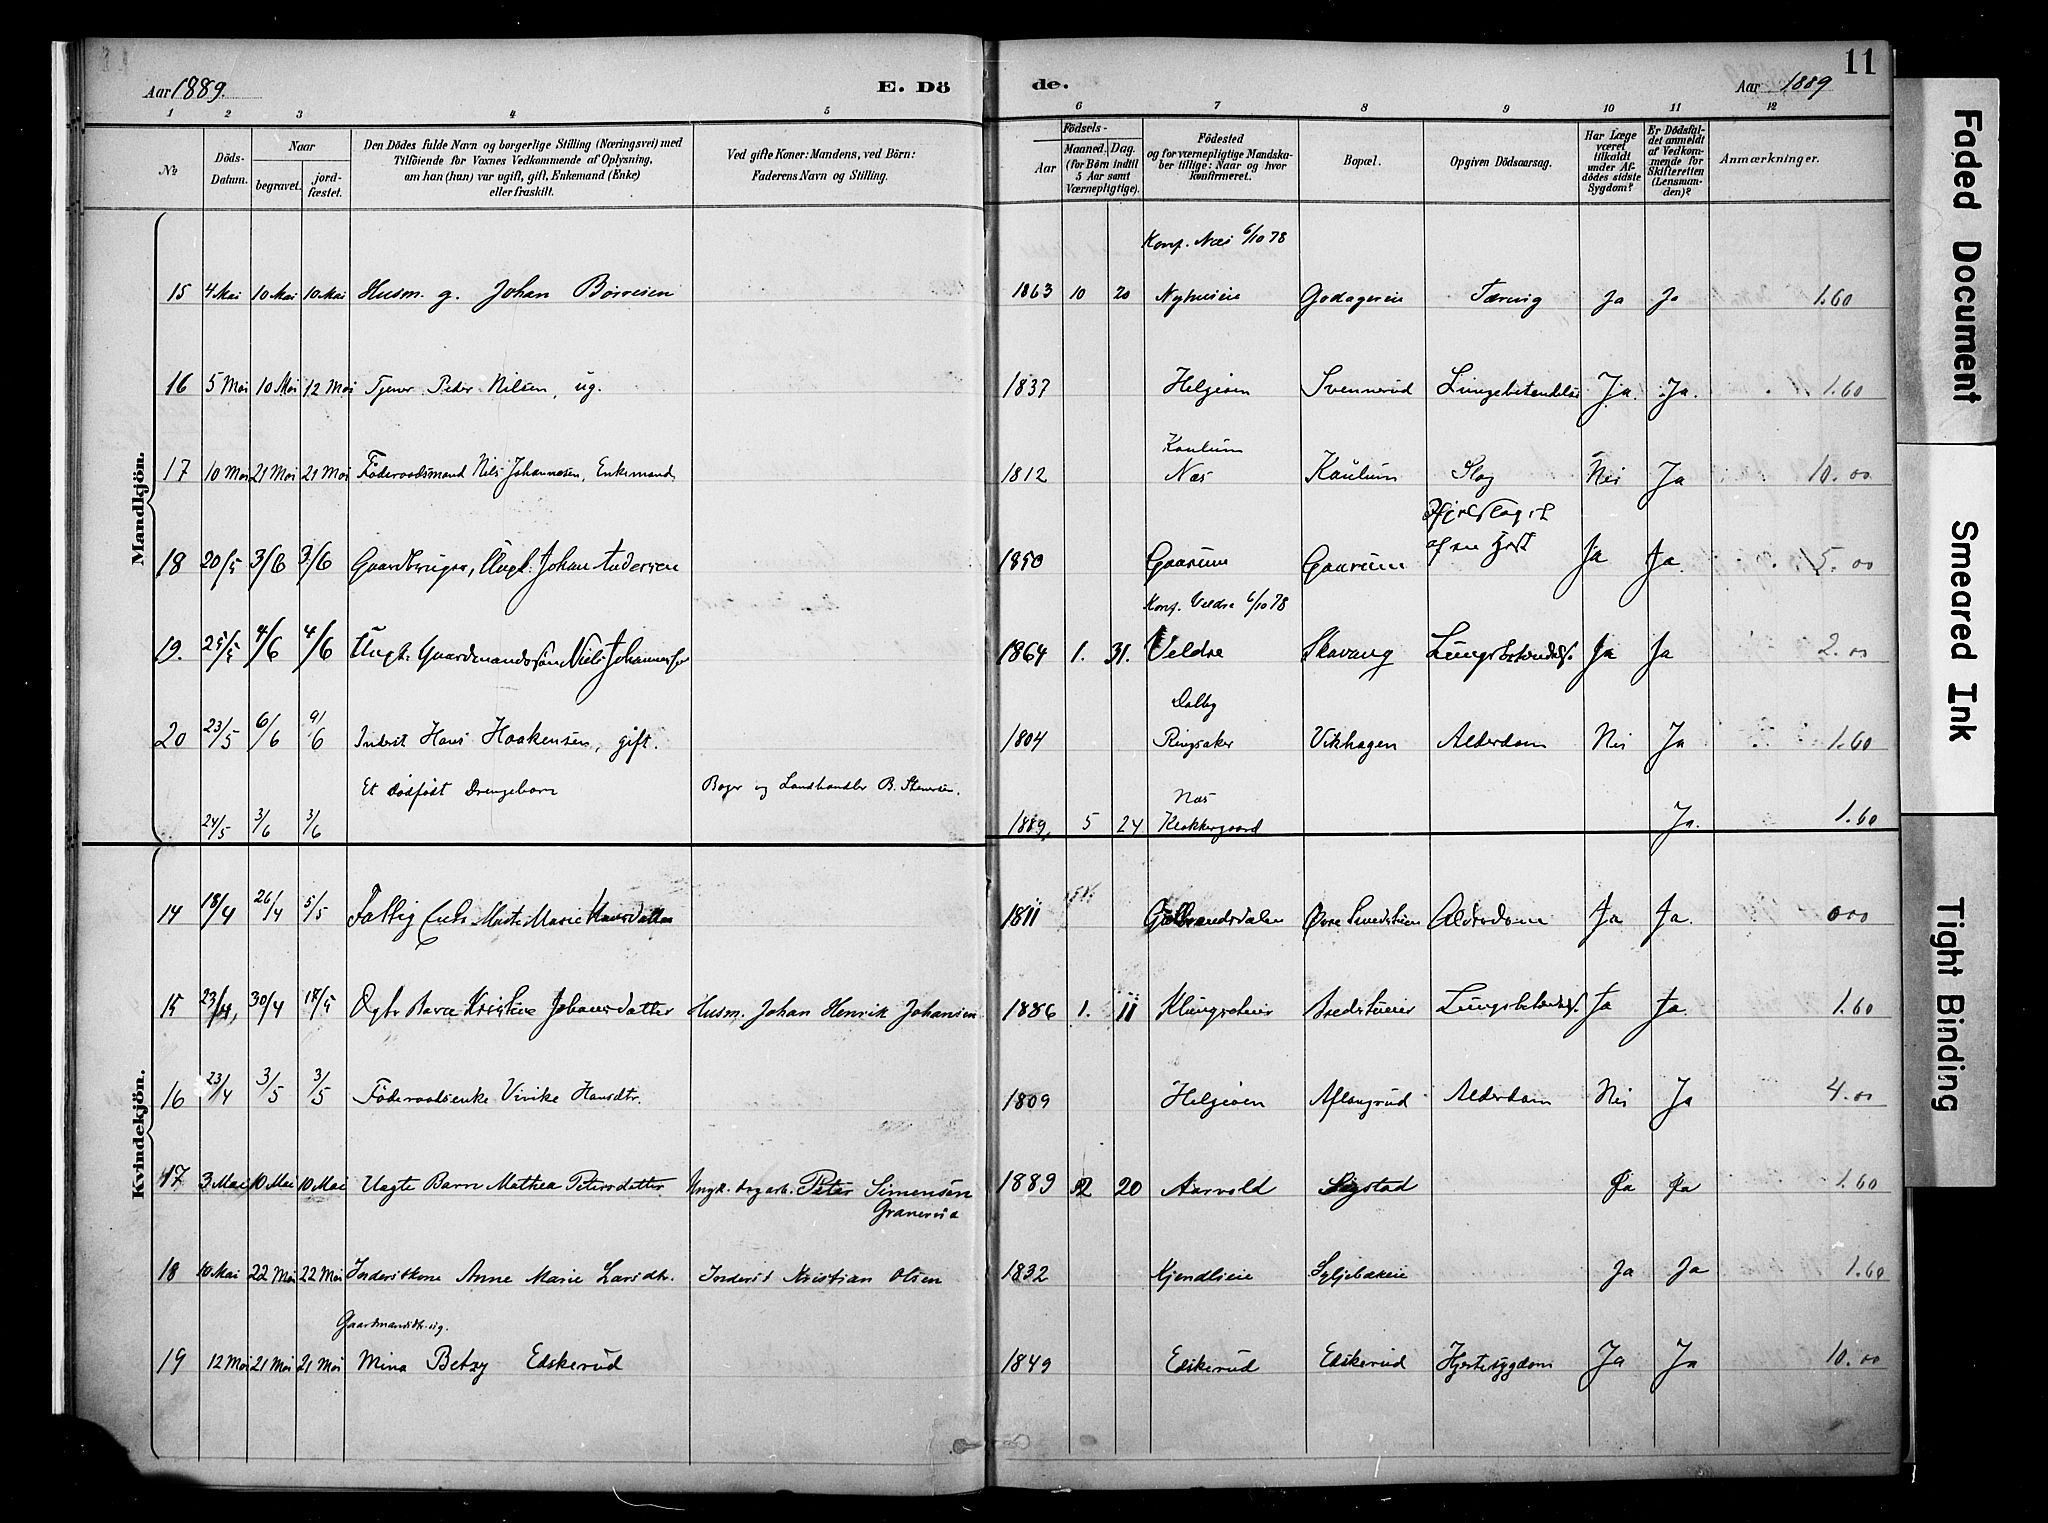 Aar 1889.
E. Dö
de.
Aar 1889
11
1 2 3 4 5 6 7 8 9 10 11 12
№
Döds-Datum.
Naar
begravet.
jord-fæstet.
Den Dödes fulde Navn og borgerlige Stilling (Næringsvei) med
Tilföiende for Voxnes Vedkommende af Oplysning,
om han (hun) var ugift, gift, Enkemand (Enke)
eller fraskilt.
Ved gifte Koner: Mandens, ved Börn:
Faderens Navn og Stilling.
Födsels-
Aar
Maaned. Dag.
(for Börn indtil
5 Aar samt
Værnepligtige).
Födested
og for værnepligtige Mandska-
ber tillige: Naar og hvor
konfirmeret.
Bopæl.
Opgiven Dödsaarsag.
Har Læge
været
tilkaldt
under Af-
dödes sidste
Sygdom?
Er Dödsfal-
det anmeldt
af Vedkom-
mende for
Skifteretten
(Lensman-
den)?
Anmærkninger.
Mandkjön.
Konf. Næs 6/10 78
15 4 Mai 10 Mai 10 Mai Husm. g. Johan Börresen 1863 10 20 Nyhuseie Godagereie Tæring Ja Ja 1.60
16 5 Mai 10 Mai 12 Mai Tjener Peder Nilsen, ug. 1837 Helgöen Svennerud Lungebetændelse Ja. Ja. 1.60
Kaulum
17 10 Mai 21 Mai 21 Mai Föderaadsmand Nils Johannesen, Enkemand 1812 Næs Kaulum Slag Nei Ja 10.00
18 20/5 3/6 3/6 Gaardbruger, Ungk. Johan Andersen 1850 Gaarum Gaarum af en Hest Ja Ja. 5.00
Konf. Veldre 6/10 78
19. 25/5 4/6 4/6 Ungk. Gaardmandssøn Niels Johannesen 1864 1. 31. Veldre Skavang Lungebetændelse. Ja Ja 2.00
Dalby
20 23/5 6/6 9/6 Inderst Hans Haakensen, gift. 1804 Ringsaker Vikhagen Alderdom Nei Ja 1.60
Et dödfödt Drengebarn Bager og Landhandler B. Stenersen.
Næs
24/5 3/6 3/6 1889, 5 24 Klokkergaard Ja. 1.60
Kvindekjön.
14 18/4 26/4 5/5 Fattig Enke Marte Marie Hansdatter 1811 Gulbrandsdalen Øvre Smedstuen Alderdom Ja Ja. 000
15 23/4, 30/4 17/5 Ugte Barn Kristine Johansdatter Husm. Johan Henrik Johansen 1886 1. 11 Klungseteie Bredstueeie Lungebetændelse. Ja Ja. 1.60
16 23/4 3/5 3/5 Föderaadsenke Vivike Hansdtr. 1809 Helgöen Aflangrud Alderdom Nei Ja 4.00
17 3 Mai 10 Mai 10 Mai Uegte Barn Mathea Petersdatter Ungk. dagarb. Peter Simensen
Granereie
1889 2 20 Aarvold Sigstad Ja Ja 1.60
18 10 Mai 22 Mai 22 Mai Inderstkone Anne Marie Larsdtr. Inderst Kristian Olsen 1832 Kjendlieie Syljebækeie Ja Ja 1.60
Gaardmandsdtr. ug.
19 12 Mai 21 Mai 21 Mai Mina Betzy Edskerud 1849 Edskerud Edskerud Hjertesygdom Ja Ja 10.00
Faded Document
Smeared Ink
Tight Binding